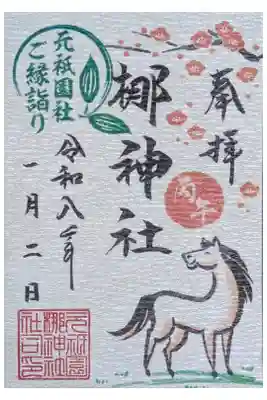 奉拝
丙午
梛神社
元祇園社
ご縁詣り
令和八年
一月二日
元祇園
梛神社
社之印